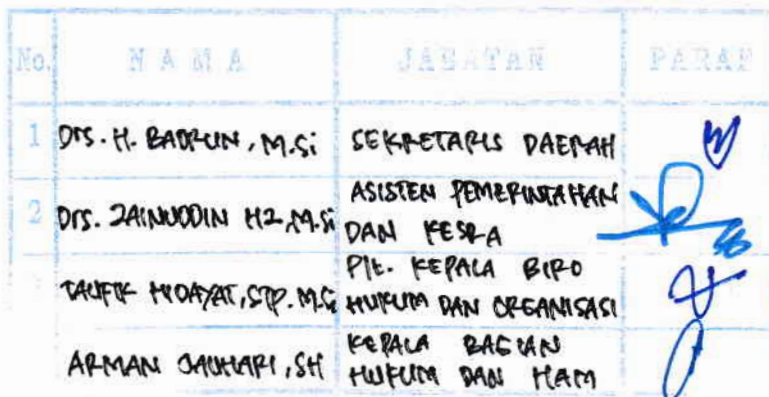 No. N A M A JABATAN PARAF
1 Drs. H. BADRUN, M.Si SEKRETARIS DAERAH
2 Drs. ZAINUDDIN HZ, M.Si ASISTEN PEMERINTAHAN
DAN KESRA
TAUFIK HIDAYAT, STP. M.Si Plt. KEPALA BIRO
HUKUM DAN ORGANISASI
ARMAN JAUHARI, SH KEPALA BAGIAN
HUKUM DAN HAM